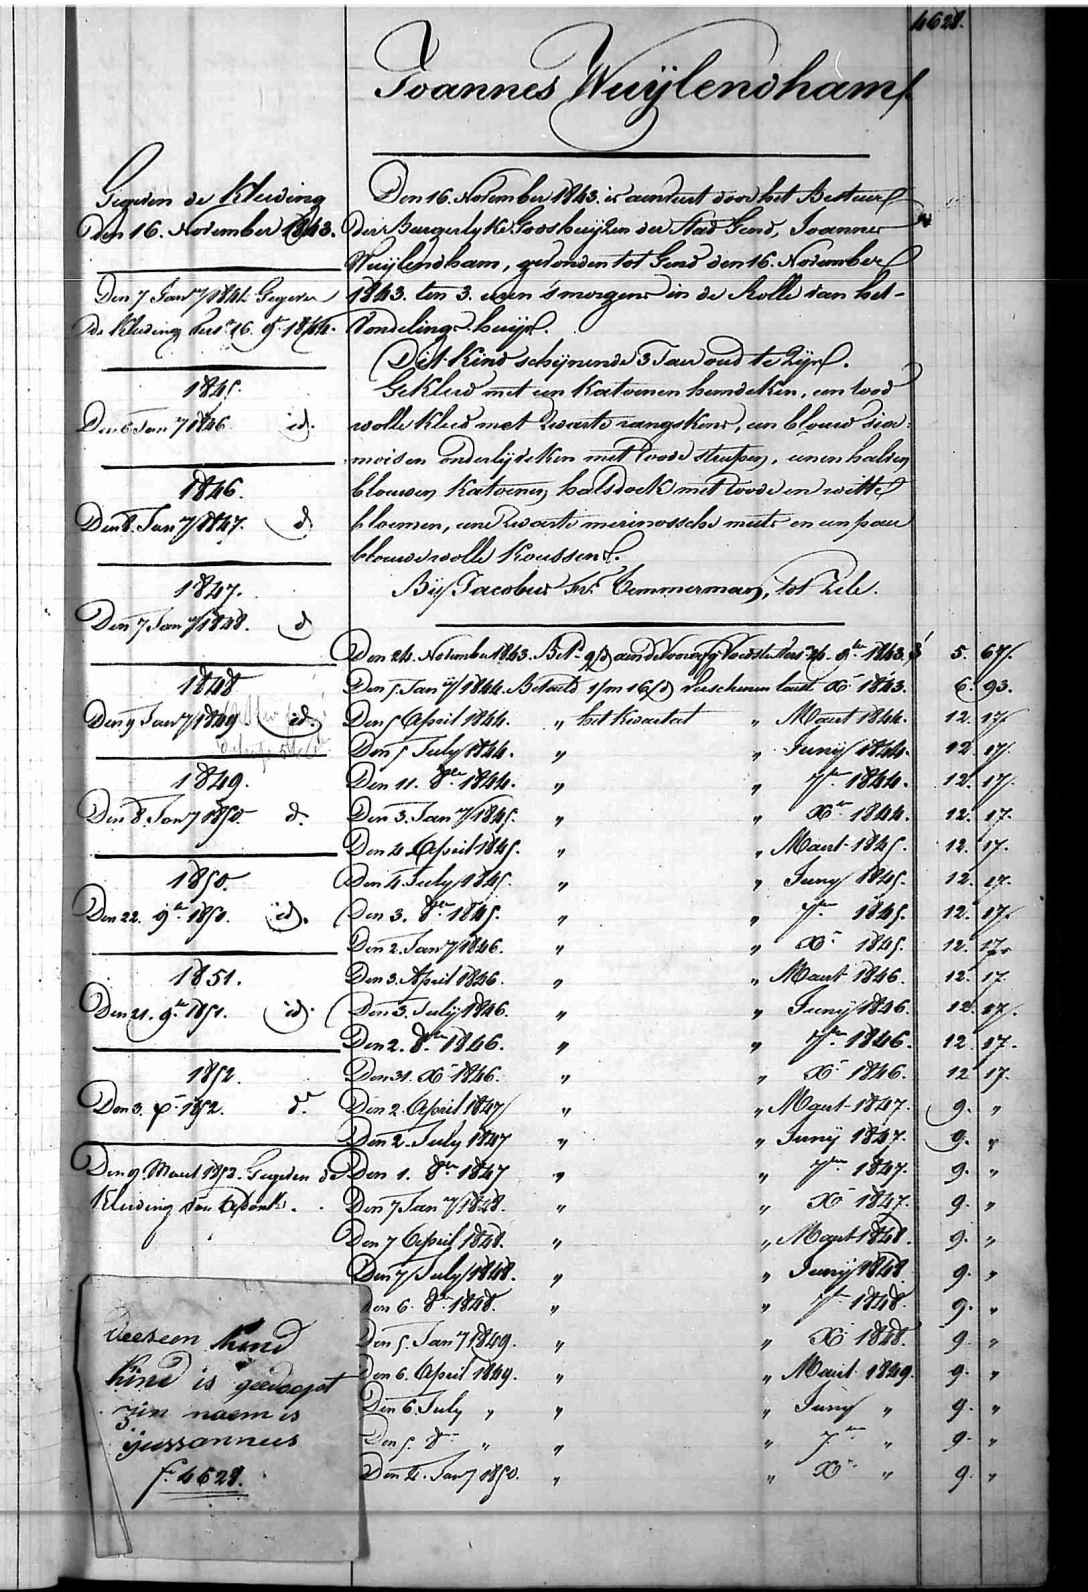 4628.
Joannes Wuijlendham
Gegeven de Kleeding
Den 16. November 1843.
Den 7 Janry 1844. Gegeven
de Kleeding vers. 16. 9r 1844.
1845.
Den 6 Janry 1846. id.
1846.
Den 8. Janry 1847. d
1847.
Den 7 Janry 1848. d
1848
Den 9 Janry 1849 id.
1849.
Den 8. Janry 1850. d.
1850.
Den 22. 9re 1850. id.
1851.
Den 21. 9re 1851. id.
1852.
Den 3. Xr 1852. do
Den 9 Maert 1853. Gegeven de
Kleeding van
Den 16. November 1843. is aenveert door het Bestuer
der Burgerlyke Godshuijzen der Stad Gend, Joannes
Wuijlendham, gevonden tot Gend den 16. November
1843. ten 3. uren 's morgens in de Rolle van het
Vondelings-huijs.
Dit Kind schijnende 3 Jaer oud te zijn.
Gekleed met een Katoenen hemdeken, een rood
wolle Kleed met zwarte rangskens, een blouw sia-
moisen onderlijveken met roode streepen, eenen halven
blouwen Katoenen halsdoek met roode en witte
bloemen, eene zwarte merinossche muts en een paer
blouwe wolle Koussens.
Bij Jacobus Fr. Temmerman, tot Zele.
Den 24. November 1843. Bet. 9/d aen de Voorzg. Voedster vers. 24. 9re 1843. 5. 67.
Den 5. Janry 1844. Betaeld 1/m 16/d verschenen laest Xr 1843. 6. 93.
Den 5 April 1844. " het Kwartael " Maert 1844. 12. 17
Den 5 July 1844. " " Junij 1844. 12 17.
Den 11. 8re 1844. " " 7re 1844. 12. 17.
Den 3. Janry 1845. " " Xre 1844. 12. 17.
Den 4 April 1845. " " Maert 1845. 12. 17.
Den 4. July 1845. " " Juny 1845. 12. 17.
Den 3. 8re 1845. " " 7re 1845. 12. 17.
Den 2. Janry 1846. " " Xr 1845. 12. 17.
Den 3. April 1846. " " Maert 1846. 12. 17
Den 3. Julij 1846. " " Junij 1846. 12. 17.
Den 2. 8re 1846. " " 7re 1846. 12. 17.
Den 31. Xr 1846. " " Xr 1846. 12 17.
Den 2. April 1847 " " Maert 1847. 9. "
Den 2. July 1847 " " Junij 1847. 9. "
Den 1. 8re 1847 " " 7re 1847. 9. "
Den 7 Janry 1848. " " Xr 1847. 9. "
Den 7 April 1848. " " Maert 1848. 9. "
Den 7 July 1848. " " Junij 1848 9. "
Den 6. 8re 1848. " " 7r 1848. 9. "
Den 5. Janry 1849. " " Xr 1848. 9. "
Den 6. April 1849. " " Maert 1849. 9. "
Den 6. July " " " Juny " 9. "
Den 5. 8r " " " 7re " 9. "
Den 4. Janry 1850. " " Xre " 9. "
deeseen kind
kind is gedoopt
zin naem is
yussannus
fo 4628.